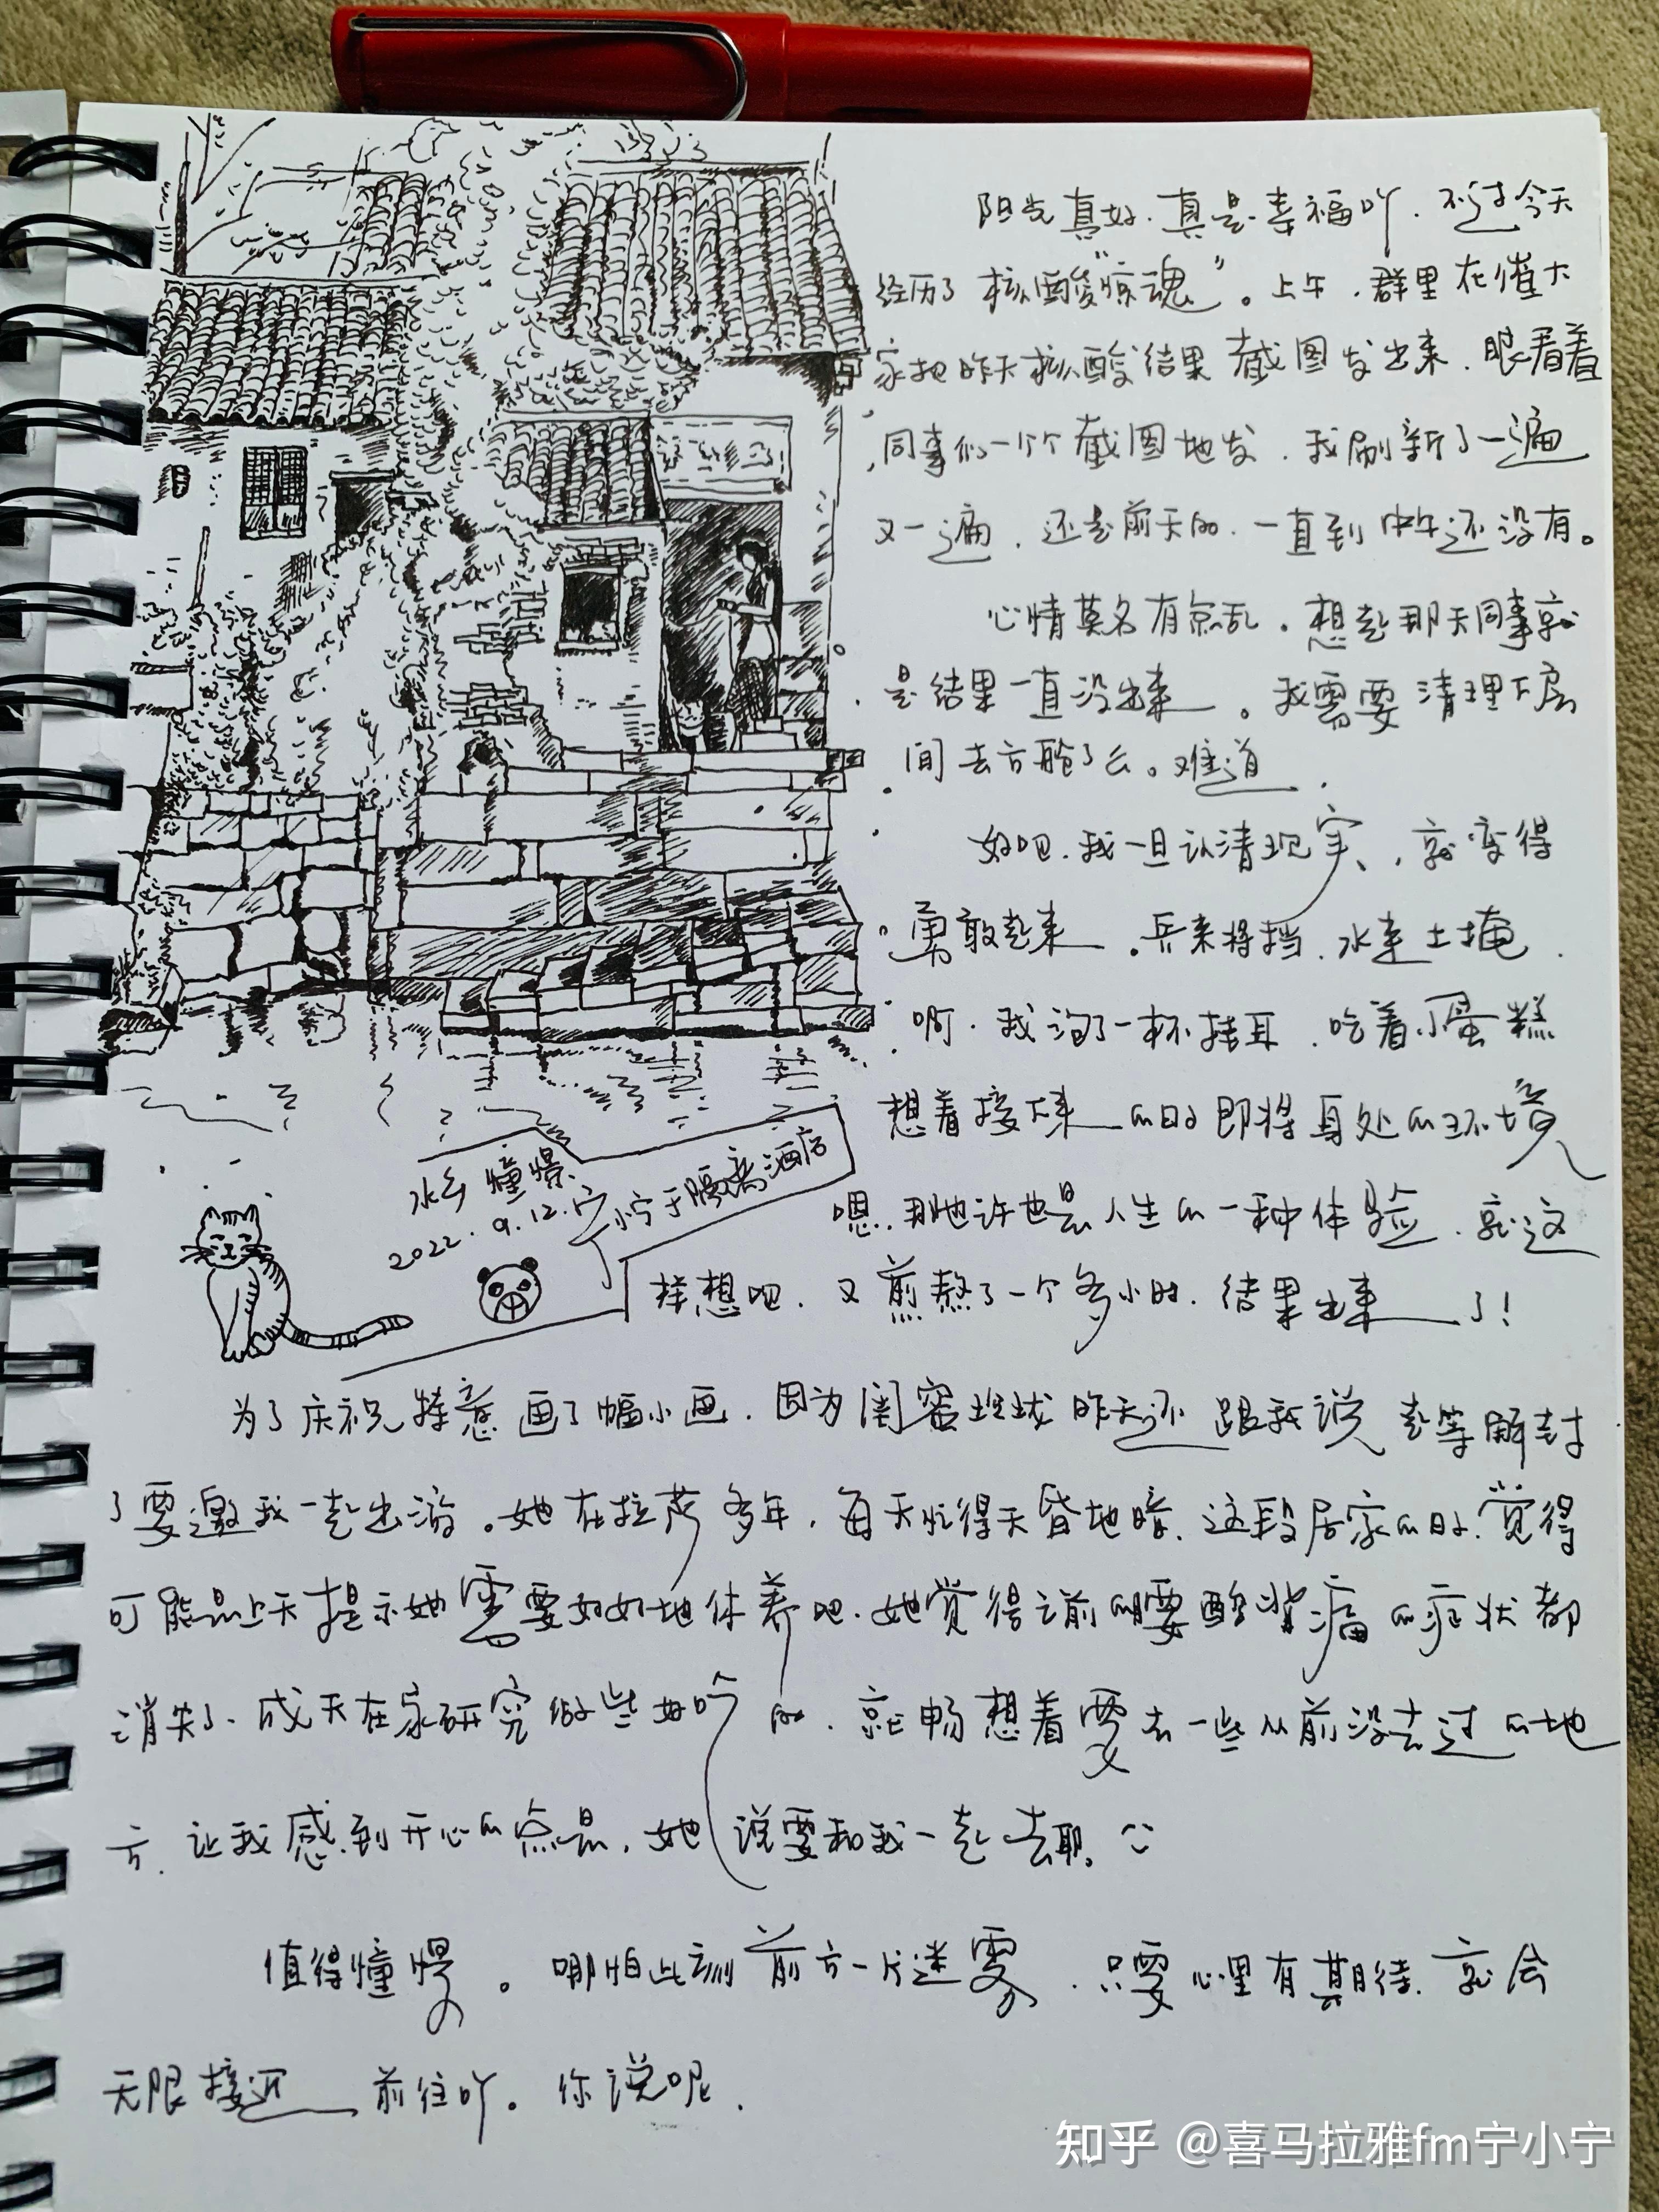 阳光真好.真是幸福吖.不过今天
经历了核酸“惊魂”。上午.群里在催大
家把昨天核酸结果截图发出来.眼看着
同事们一个个截图地发.我刷新了一遍
又一遍.还是前天的.一直到中午还没有。
心情莫名有点乱。想起那天同事就
是结果一直没出来。我需要清理下房
间去方舱了么。难道.
好吧.我一旦认清现实,就变得
勇敢起来。兵来将挡.水来土掩.
啊.我泡了一杯挂耳.吃着小蛋糕
想着接下来的时即将身处的环境
嗯.那也许也是人生的一种体验.就这
样想吧.又煎熬了一个多小时.结果出来了!
水乡憧憬
2022.9.12.宁
小宁于隔离酒店
为了庆祝特意画了幅小画.因为闺蜜昨天还跟我说起等解封
了要邀我一起出游。她在拉萨多年.每天忙得天昏地暗.这段居家的时.觉得
可能是上天提示她需要好好地休养吧.她觉得之前的腰酸背痛的症状都
消失了.成天在家研究做些好吃的.就畅想着要去一些从前没去过的地
方.让我感到开心的点是,她说要和我一起去耶。
值得憧憬。哪怕此刻前方一片迷雾.只要心里有期待.就会
无限接近前往吖。你说呢.
知乎 @喜马拉雅fm宁小宁